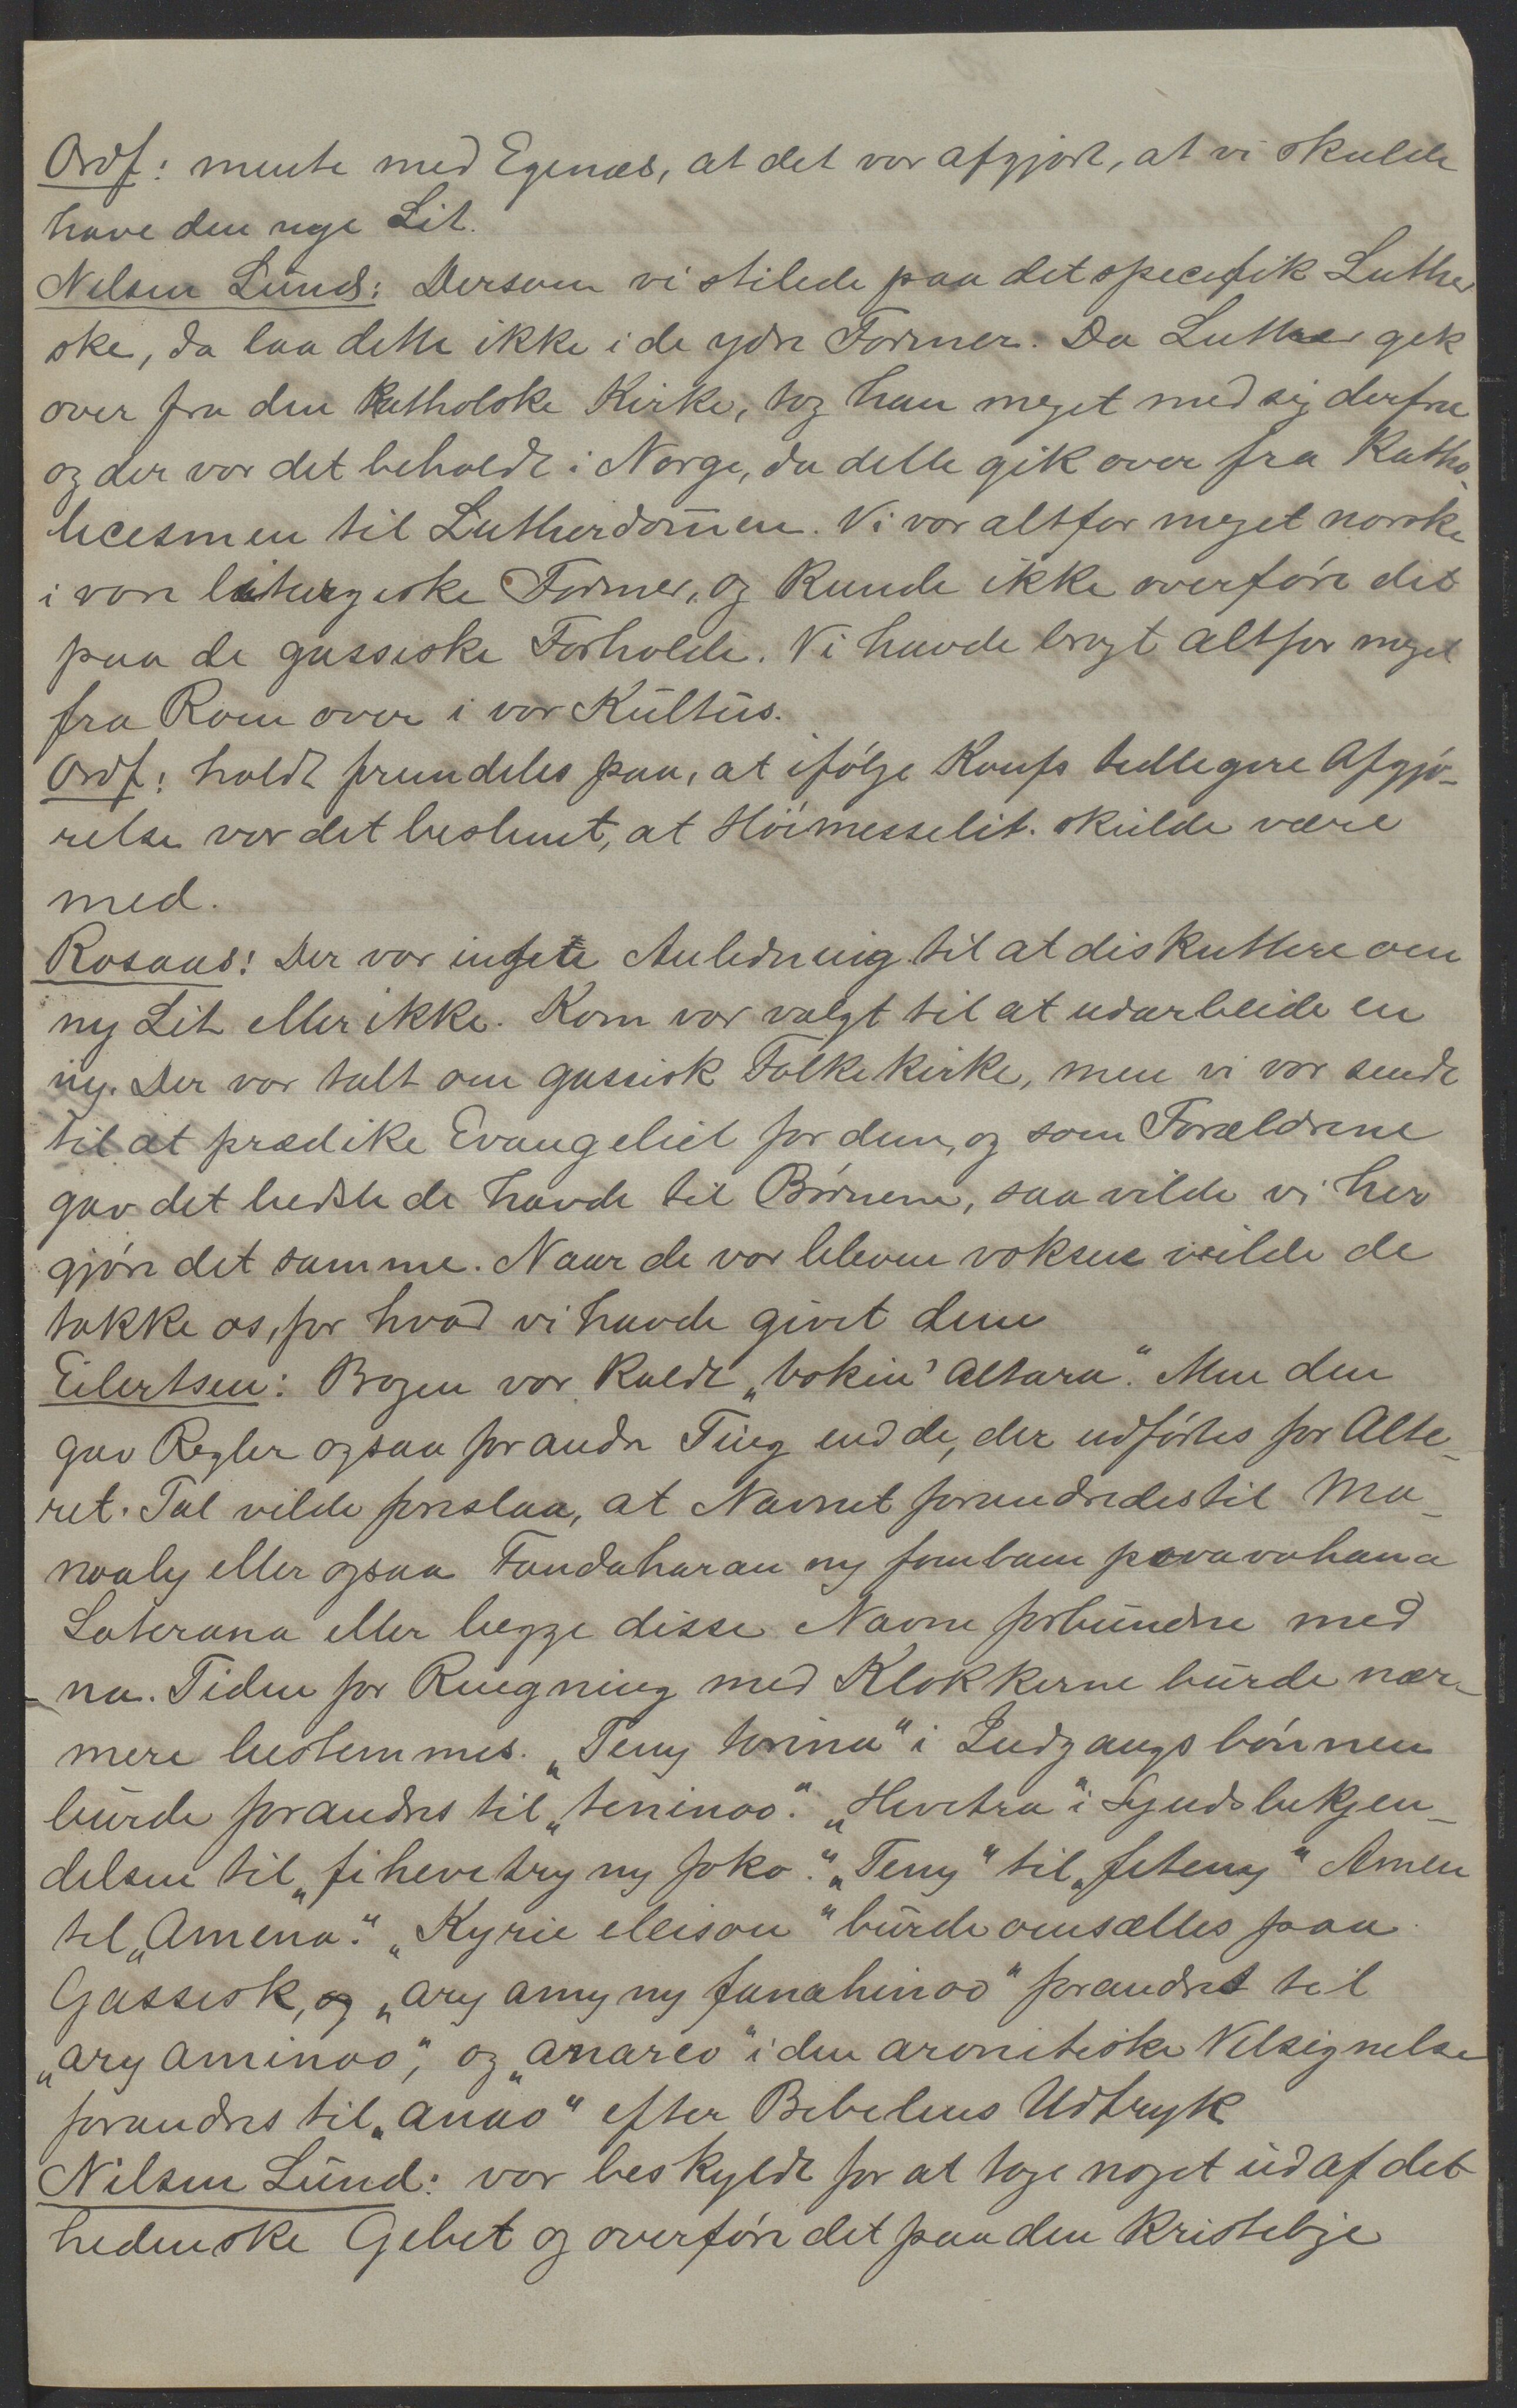 Ordf: mente med Egenæs, at det var afgjort, at vi skulde
have den nye Lit.
Nilsen Lund: Dersom vi stilede paa det specefik Luther
ske, da laa dette ikke i de ydre Former. Da Luther gek
over fra den Katholske Kirke, tog han meget med sig derfra
og der var det beholdt i Norge, da dette gik over fra Katho-
licesmen til Lutherdommen. Vi var altfor meget norske
i vore liturgiske Former, og kunde ikke overføre dit
paa de gassiske Forholde. Vi havde bragt altfor meget
fra Rom over i vor Kultus.
Ordf: holdt fremdeles paa, at ifølge Konfs tidligere Afgjø-
relse var det bestemt, at Höimesselit. skulde være
med.
Rosaas: Der var ingen Anledning til at diskuttere om
ny Lit eller ikke. Kom var valgt til at udarbeide en
ny. Der var talt om gassisk Folkekirke, men vi var sendt
til at prædike Evangeliet for dem, og som Forældrene
gav det bedste de havde til Børnene, saa vilde vi her
gjøre det samme. Naar de var bleven voksne vilde de
takke os, for hvad vi havde givet dem
Eilertsen: Bogen var kaldt „bokin' altara". Men den
gav Regler ogsaa for andre Ting end de, der udførtes for Alte-
ret. Tal vilde foreslaa, at Navnet forandredes til Ma-
noaly eller ogsaa Fandaharan ny fomban' pivavahana
Loterana eller begge disse Navne forbundne med
na. Tiden for Ringning med Klokkerne burde nær-
mere bestemmes. „Teny tonina" i Indgangsbønnen
burde forandres til „teninao". „Hevitra" i Syndsbekjen-
delsen til „fihevitry ny foko". „Teny" til „fiteny" Amen
til „Amena". „Kyrie eleison" burde omsættes paa
Gassisk, og „ary amy ny fanahinao" forandret til
„ary aminao", og „anareo" i den aronitiske Velsignelse
forandres til „anao" efter Bibelens Udtryk
Nilsen Lund: var beskyldt for at tage noget ud af det
hedenske Gebet og overføre det paa den kristelige